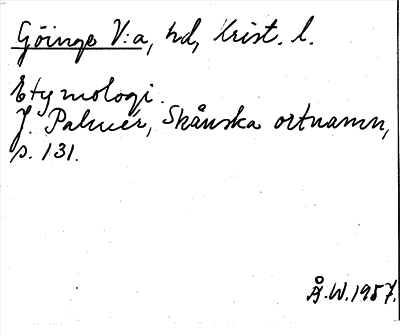 Göinge V:a, hd, Krist. l.
Etymologi.
J. Palmér, Skånska ortnamn,
s. 131.
Å.W.1957.